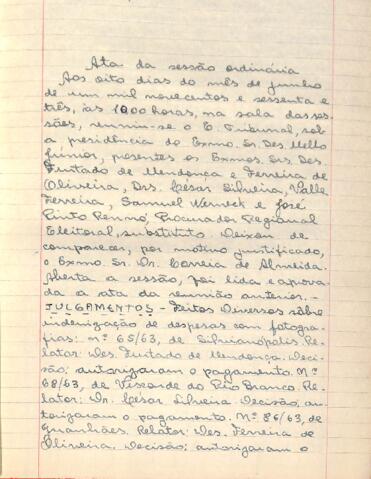 Ata da sessão ordinária
Aos oito dias do mês de junho
de um mil novecentos e sessenta e
três, às 1000 horas, na sala das ses
sões, reuniu-se o E. Tribunal, sob
a presidência do Exmo. Sr. Des. Mello
Júnior, presentes os Exmos. Srs. Des.
Furtado de Mendonça e Ferreira de
Oliveira, Drs. César Silveira, Valle
Ferreira, Samuel Werneck e José
Pinto Renno, Procurador Regional
Eleitoral, substituto. Deixou de
comparecer, por motivo justificado,
o Exmo. Sr. Dr. Correia de Almeida.
Aberta a sessão, foi lida e aprova-
da a ata da reunião anterior. -
JULGAMENTOS - Feitos Diversos sôbre
indenização de despesas com fotogra-
fias: nº 65/63, de Silvianópolis. Re-
lator: Des. Furtado de Mendonça. Deci-
são: autorizaram o pagamento. Nº
68/63, de Visconde do Rio Branco. Re-
lator: Dr. César Silveira. Decisão, au-
torizaram o pagamento. Nº 86/63, de
Guanhães. Relator: Des. Ferreira de
Oliveira. Decisão: autorizaram o